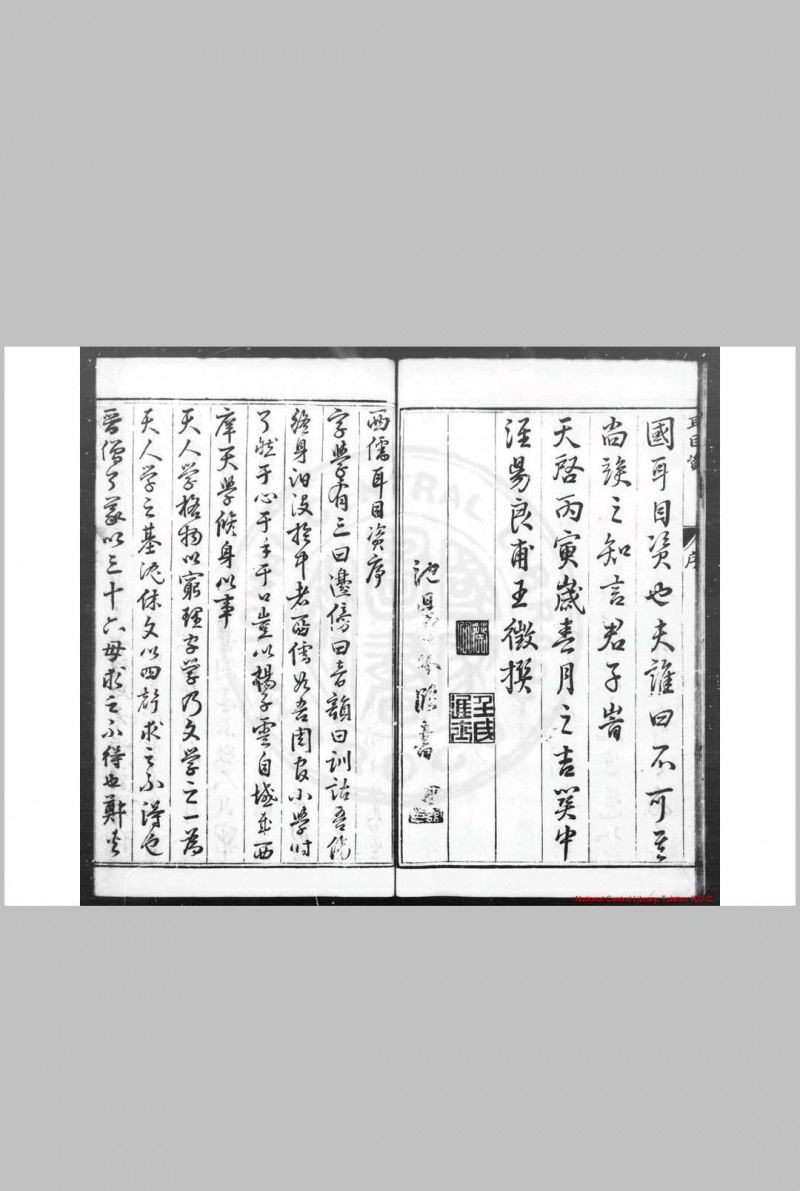 耳目資
序
國耳目資也夫誰曰不可
尚竢之知言君子
天啓丙寅歲春月之吉
涇陽良甫王徵撰
書
西儒耳目資序
字學有三曰邊傍曰音韻曰訓詁吾儕
終身汩沒於中者西儒如吾周官小學時
了然于心于手于口豈以楊子雲自域哉西
庠天學候身以事
天人學格物以窮理字學乃文學之一為
天人學之基沈休文以四韻求之不得也
晉僧了義以三十六母求之不得也鄭夾
National Central Library, Taiwan, R.O.C.